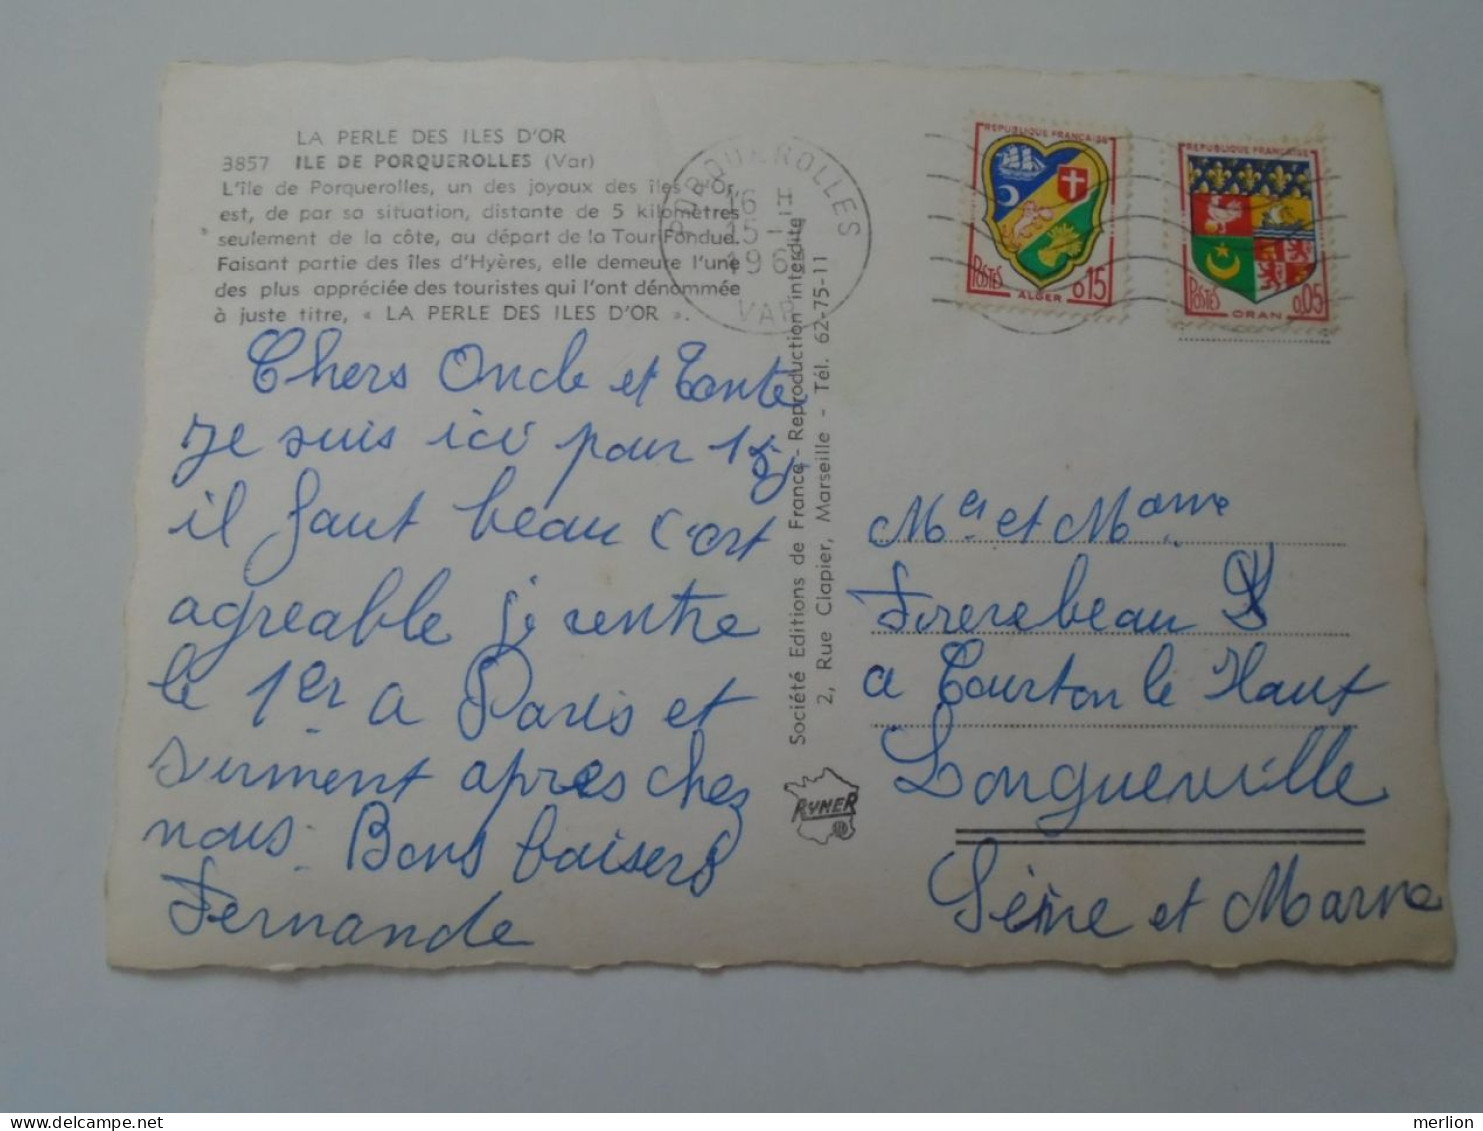 LA PERLE DES ILES D'OR
3857 ILE DE PORQUEROLLES (Var)
L'île de Porquerolles, un des joyaux des îles d'Or,
est, de par sa situation, distante de 5 kilomètres
seulement de la côte, au départ de la Tour Fondue.
Faisant partie des îles d'Hyères, elle demeure l'une
des plus appréciée des touristes qui l'ont dénommée
à juste titre, « LA PERLE DES ILES D'OR ».
Chers Oncle et Tante
je suis ici pour 15j
il faut beau c'est
agreable je rentre
le 1er a Paris et
surment apres chez
nous. Bons baisers
Fernande
PORQUEROLLES
16 H
15 - 
196
VAR
Société Editions de France - Reproduction interdite
2, Rue Clapier, Marseille - Tél. 62-75-11
RYNER
REPUBLIQUE FRANÇAISE
POSTES
ALGER
0,15
REPUBLIQUE FRANÇAISE
POSTES
ORAN
0,05
et
a Courton le Haut
Longueville
Seine et Marne